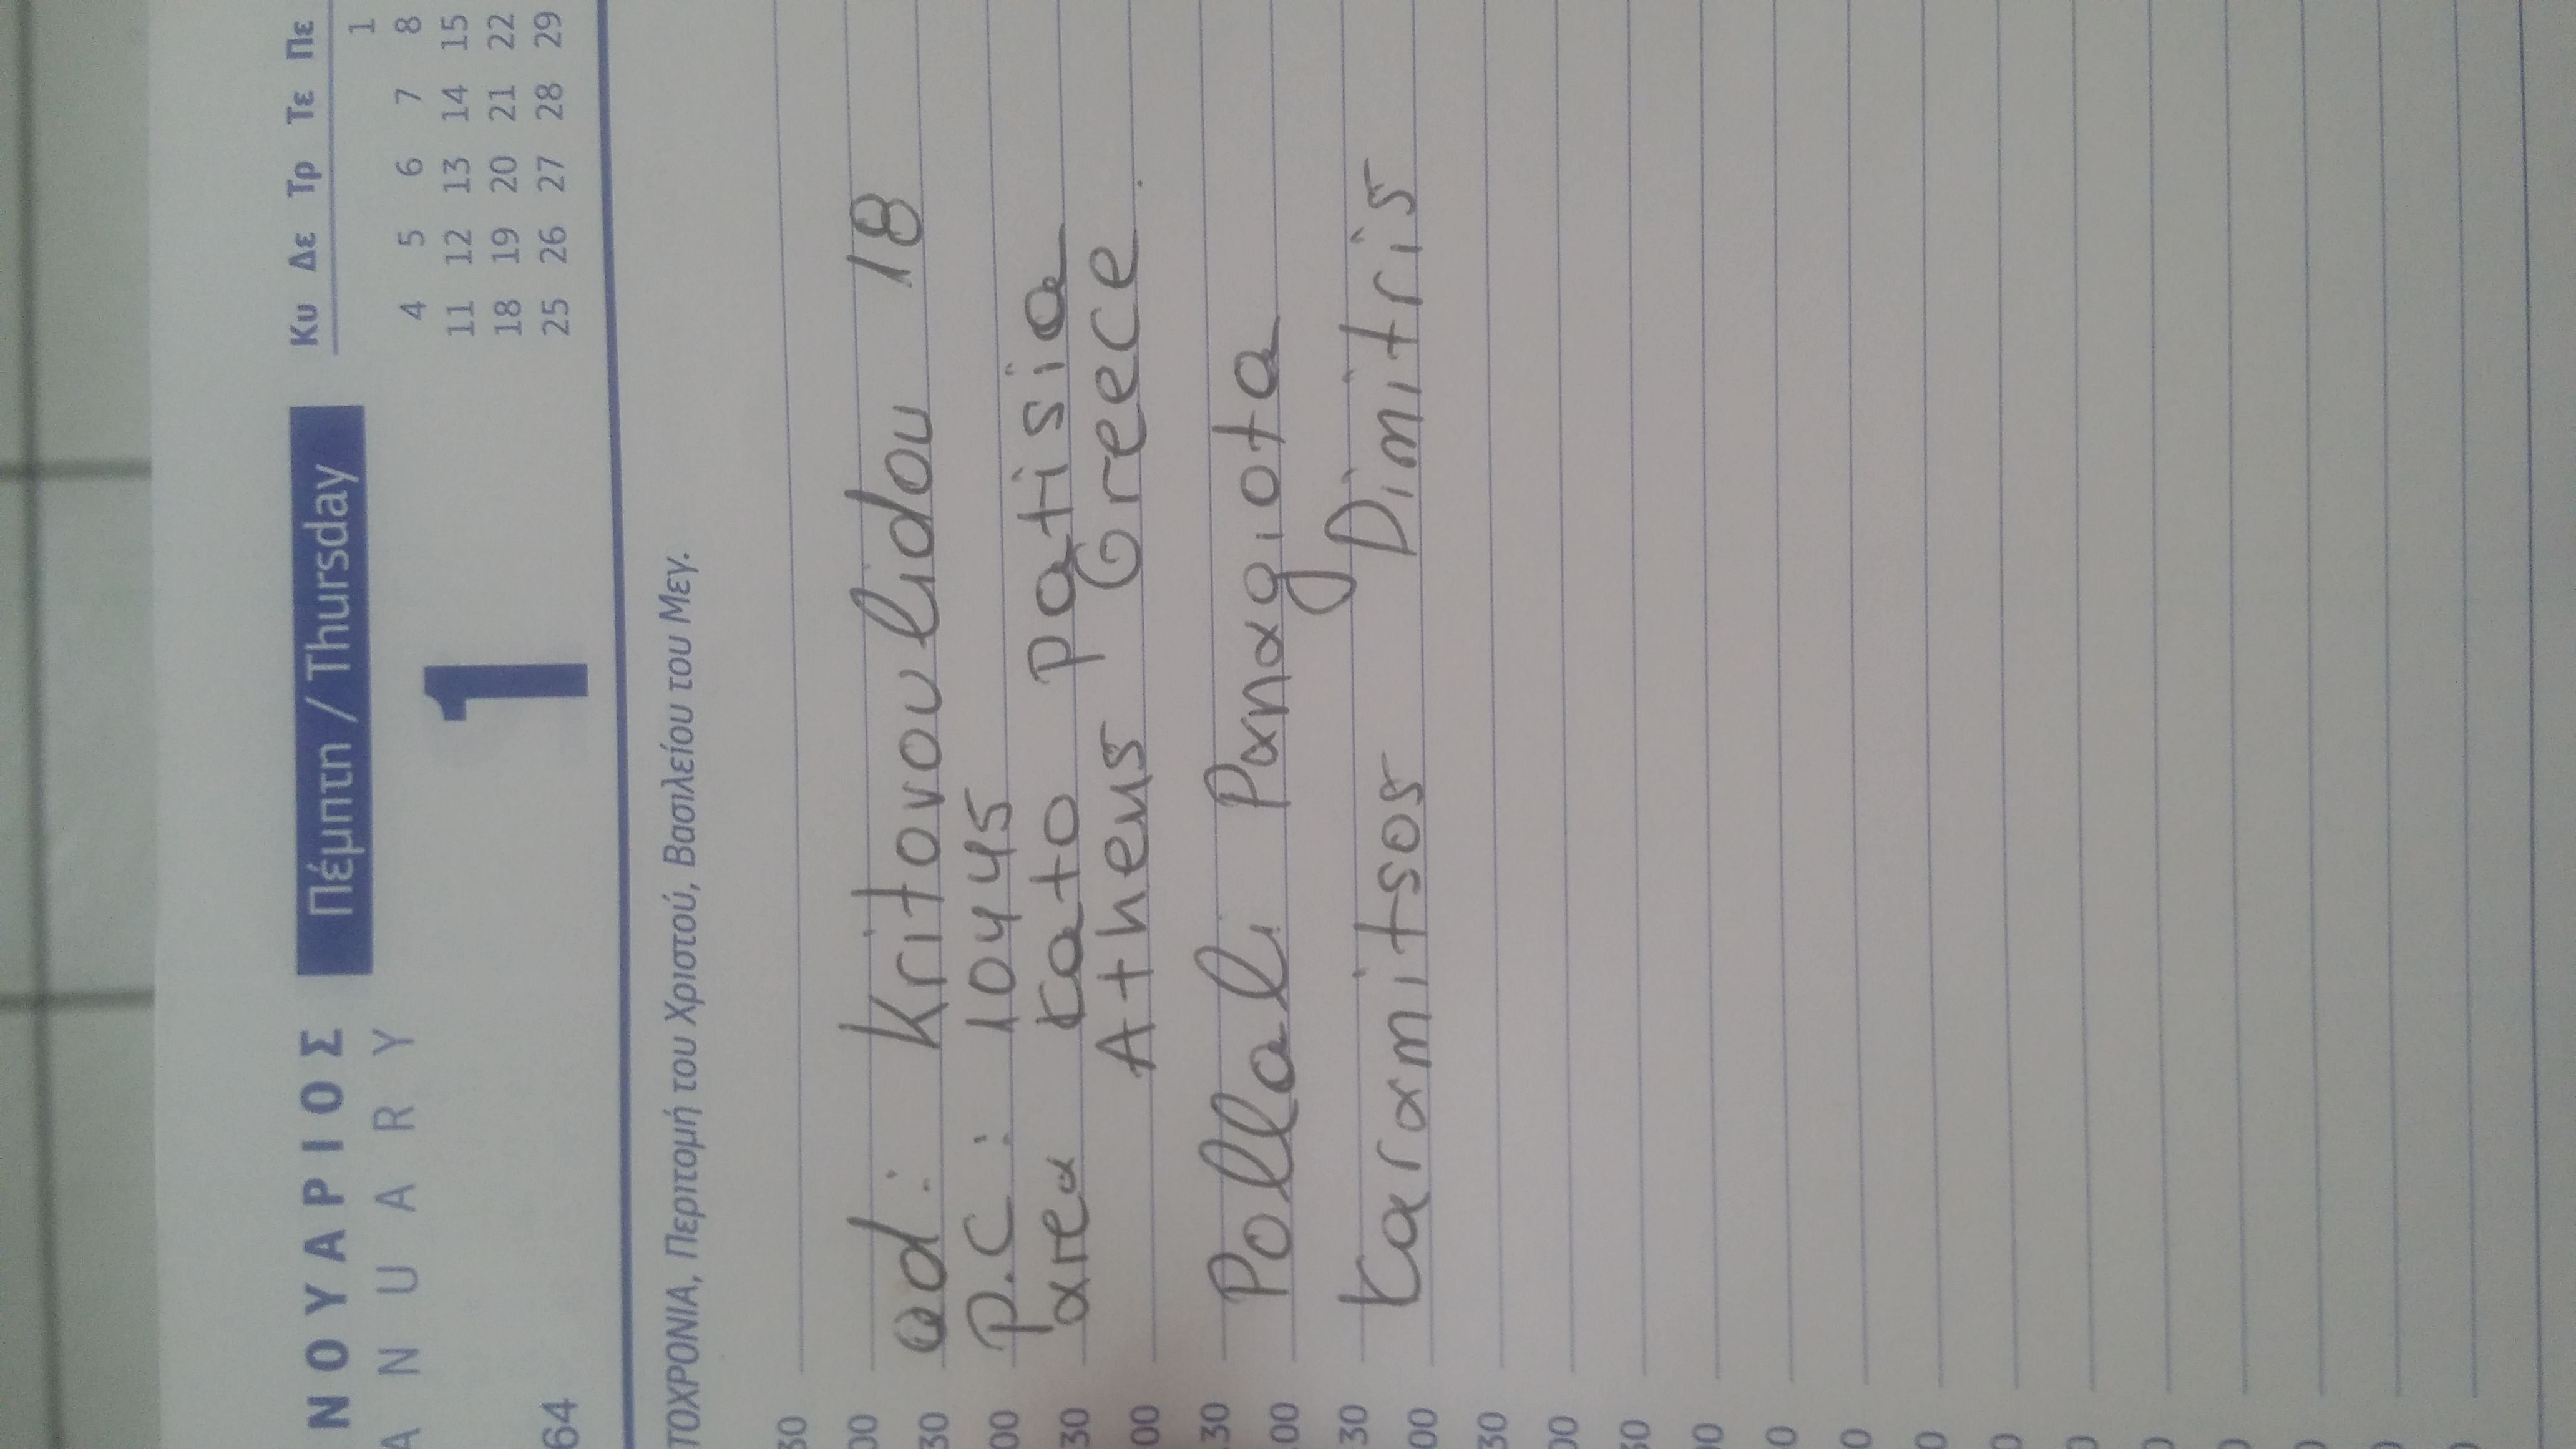 ΝΟΥΑΡΙΟΣ
ANUARY
Πέμπτη / Thursday
1
64
Κυ Δε Τρ Τε Πε
1
4 5 6 7 8
11 12 13 14 15
18 19 20 21 22
25 26 27 28 29
ΤΟΧΡΟΝΙΑ, Περιτομή του Χριστού, Βασιλείου του Μεγ.
30
00
ad: Kritovoulidou 18
30
p.C : 10445
00
area Kato patisia
30
Athens Greece.
00
30
Pollali Panagiota
00
30
Karamitsos Dimitris
00
30
00
30
00
0
0
0
0
0
0
0
0
0
0